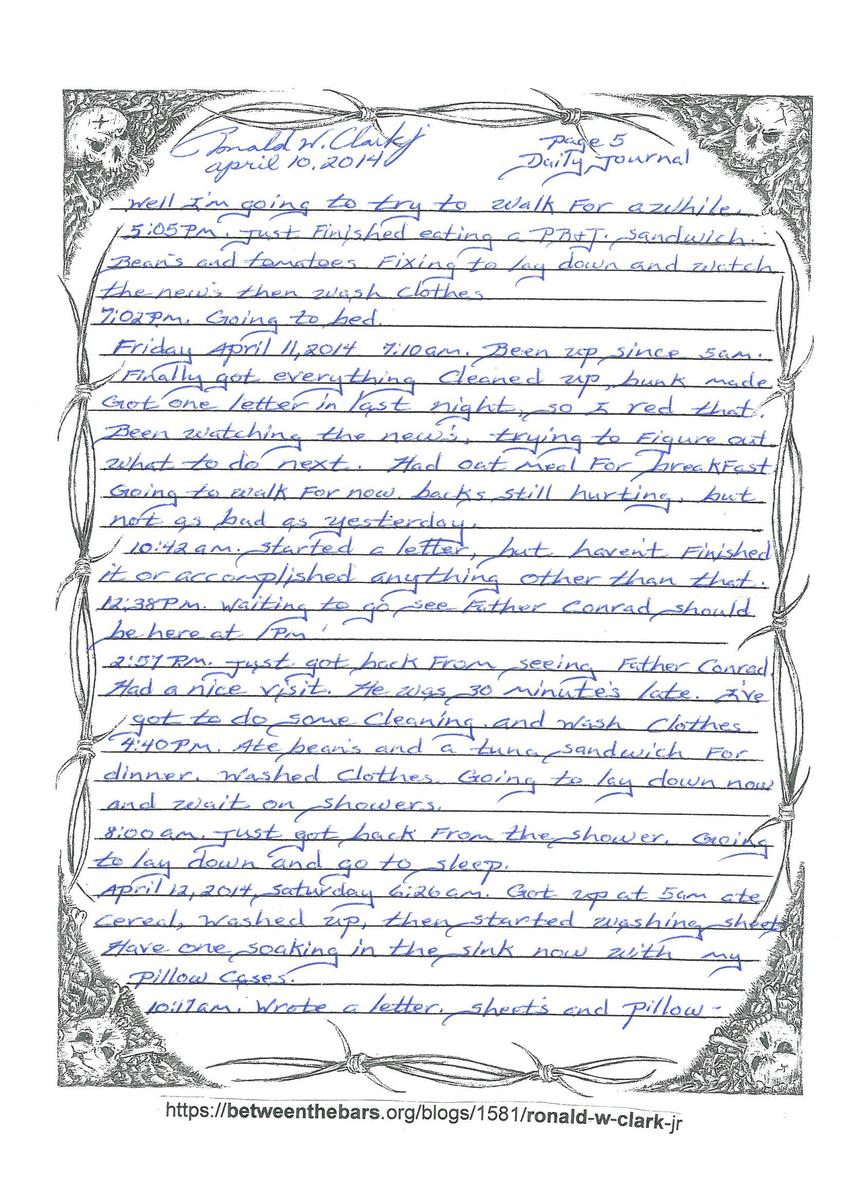 Ronald W. Clark jr
page 5
april 10, 2014
Daily Journal
Well I'm going to try to walk For awhile.
5:05 PM. Just Finished eating a PB+J. sandwich.
Bean's and tomatoes. Fixing to lay down and watch
the new's then wash clothes
7:02 PM. Going to bed.
Friday April 11, 2014 7:10 am. Been up since 5am.
Finally got everything Cleaned up, bunk made
Got one letter in last night, so I red that.
Been watching the new's, trying to Figure out
what to do next. Had oat meal For breakFast
Going to walk For now. backs still hurting, but
not as bad as yesterday.
10:42 am. started a letter, but haven't Finished
it or accomplished anything other than that.
12:38 PM. Waiting to go see Father Conrad, should
be here at 1PM
2:57 PM. Just got back From seeing Father Conrad.
Had a nice visit. He was 30 minute's late. I've
got to do some Cleaning. and Wash Clothes
4:40 PM. Ate bean's and a tuna sandwich For
dinner. Washed Clothes. Going to lay down now
and wait on showers.
8:00 am. Just got back From the shower. Going
to lay down and go to sleep.
April 12, 2014, Saturday 6:26 am. Got up at 5am ate
Cereal, Washed up, then started washing sheets
Have one soaking in the sink now with my
Pillow Cases.
10:17 am. Wrote a letter. sheet's and Pillow -
https://betweenthebars.org/blogs/1581/ronald-w-clark-jr